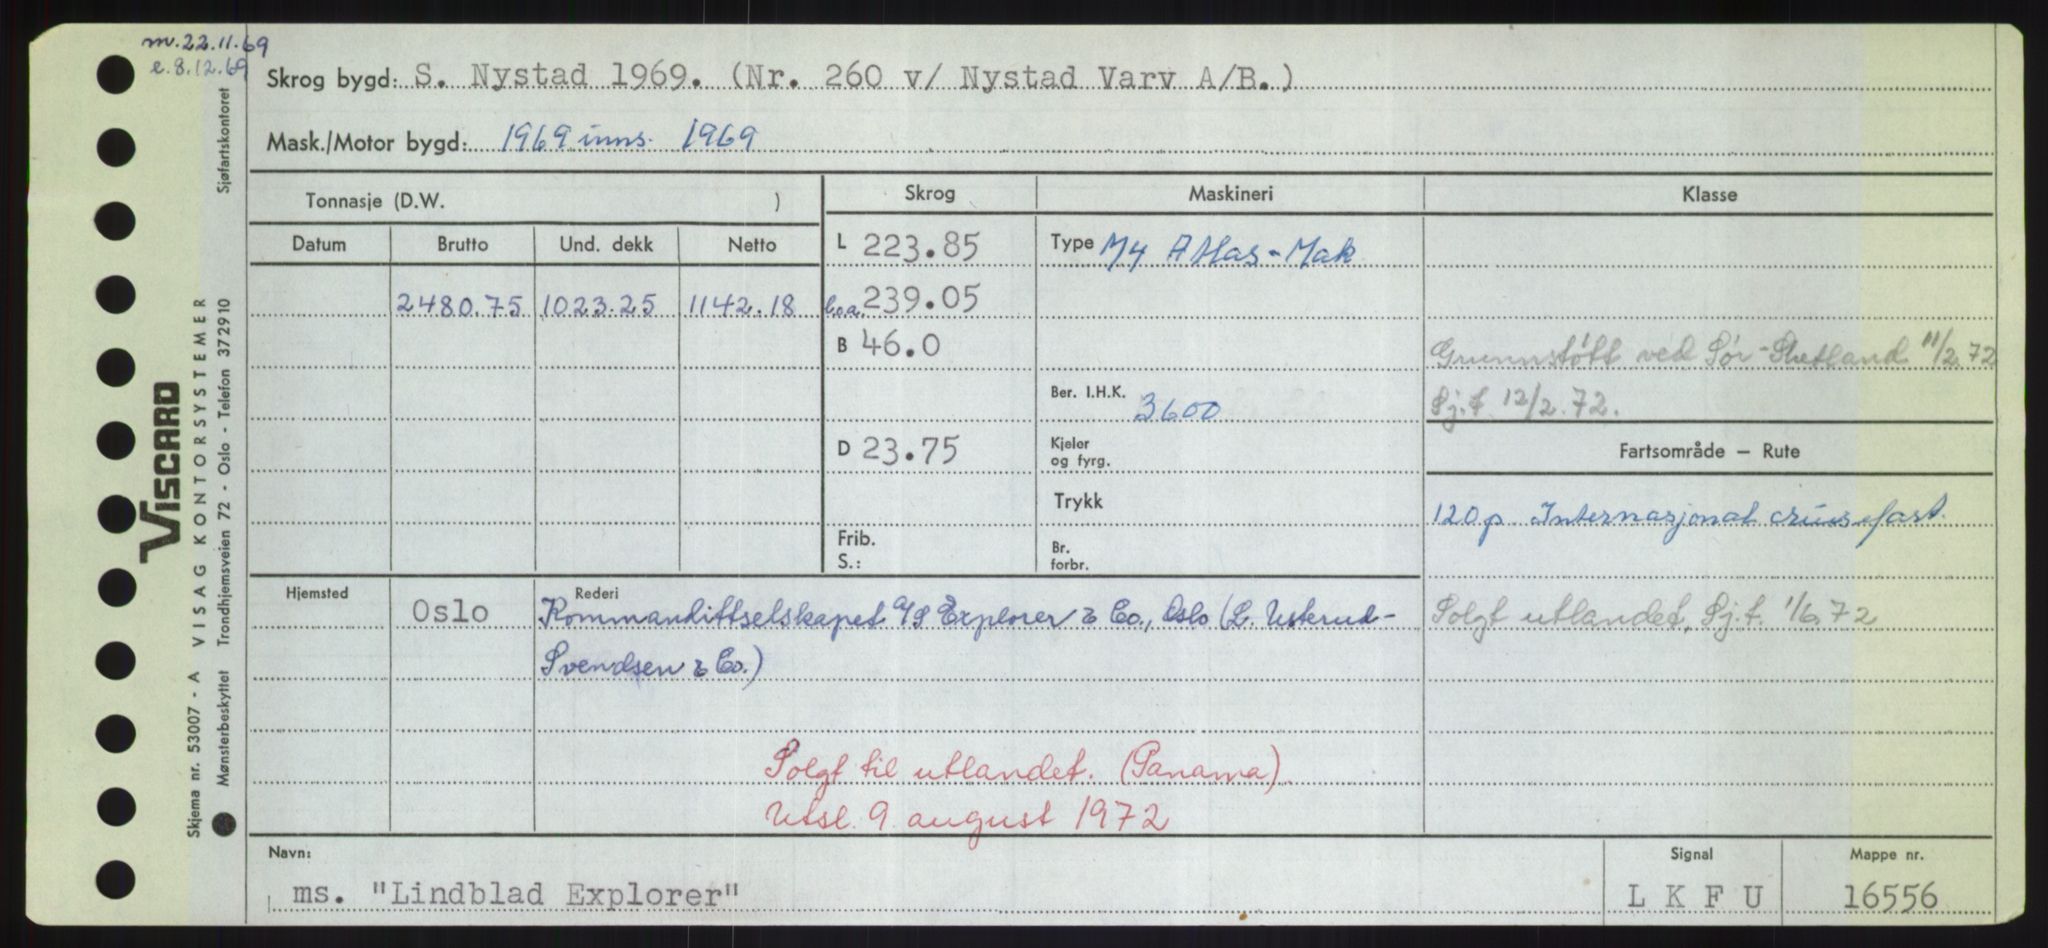 m. 22.11.69
e. 8.12.69
Skrog bygd: S. Nystad 1969. (Nr. 260 v/ Nystad Varv A/B.)
Mask./Motor bygd: 1969 inns. 1969
Tonnasje (D.W. )
Skrog Maskineri Klasse
Datum Brutto Und. dekk Netto
L 223.85 Type M4 Atlas-Mak
2480.75 1023.25 1142.18 l.o.a. 239.05
B 46.0 Grunnstøtt ved Sør-Shetland 11/2 72
Ber. I.H.K. 3600 Sj.t. 12/2.72.
D 23.75 Kjeler og fyrg.
Fartsområde – Rute
Trykk
120p Internasjonal cruisefart.
Frib.
S.:
Br. forbr.
Hjemsted Rederi
Oslo Kommandittselskapet A/S Explorer & Co., Oslo (L. Usterud-
Svendsen & Co.)
Solgt utlandet, Sj.t. 1/6.72
Solgt til utlandet. (Panama)
Utsl. 9. august 1972
Navn: Signal Mappe nr.
ms. "Lindblad Explorer" L K F U 16556
VISCARD
Skjema nr. 53007 - A VISAG KONTORSYSTEMER
Mønsterbeskyttet Trondhjemsveien 72 - Oslo - Telefon 372910 Sjøfartskontoret